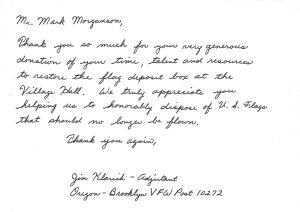 Mr. Mark Morganson,
Thank you so much for your very generous
donation of your time, talent and resources
to restore the flag deposit box at the
Village Hall. We truly appreciate you
helping us to honorably dispose of U.S. Flags
that should no longer be flown.
Thank you again,
Jim Klarich - Adjutant
Oregon - Brooklyn VFW Post 10272